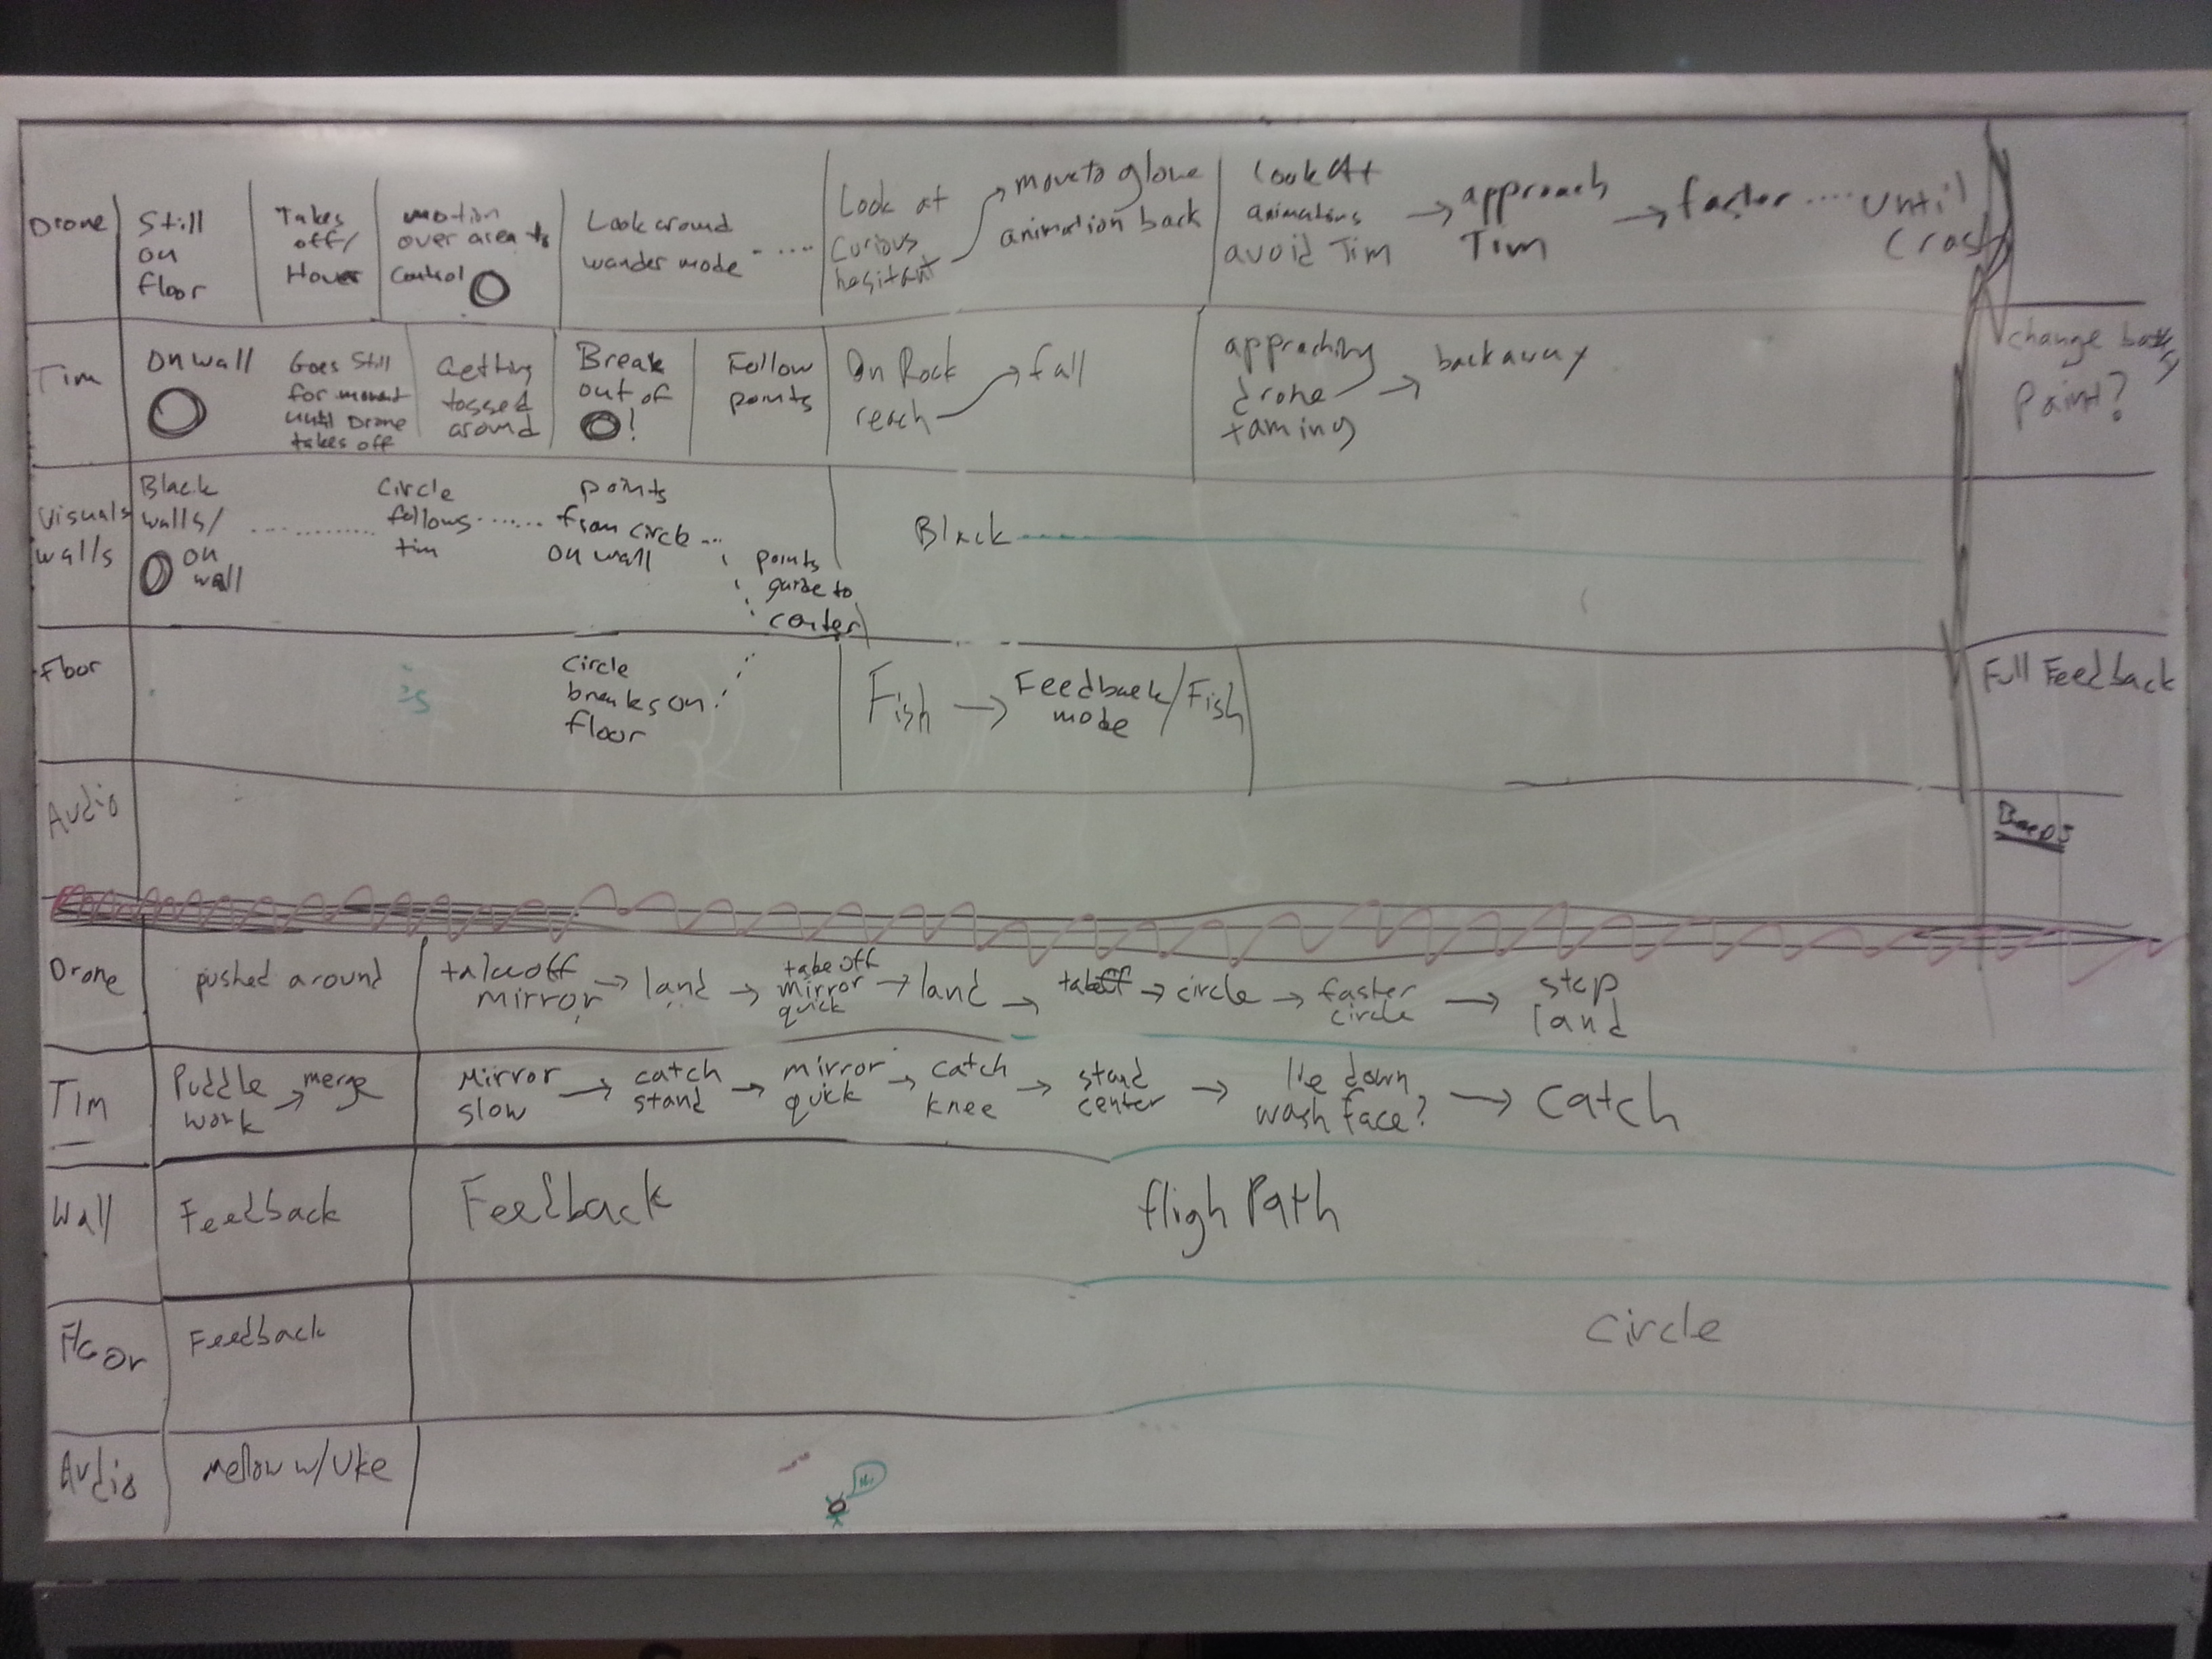 Drone
Still
on
floor
Takes
off/
Hover
motion
over area to
control
Look around
wander mode .....
Look at
curious
hesitant
move to glove
animation back
Look At
animations
avoid Tim
approach
Tim
faster .... until
Crash
Tim
On wall
Goes Still
for moment
until Drone
takes off
Getting
tossed
around
Break
out of
!
Follow
points
On Rock
reach
fall
approching
drone
taming
back away
change
Paint?
Visuals
walls
Black
walls/
on
wall
Circle
follows
tim
points
from circle
on wall
points
guide to
center
Black
Floor
is
Circle
breaks on
floor
Fish
Feedback/Fish
mode
Full Feedback
Audio
Beeps
Drone
pushed around
takeoff
mirror
land
take off
mirror
quick
land
takeoff
circle
faster
circle
stop
land
Tim
Puddle
work
merge
Mirror
slow
catch
stand
mirror
quick
catch
knee
stand
center
lie down
wash face?
Catch
Wall
Feedback
Feedback
fligh Path
Floor
Feedback
Circle
Audio
Mellow w/ Uke